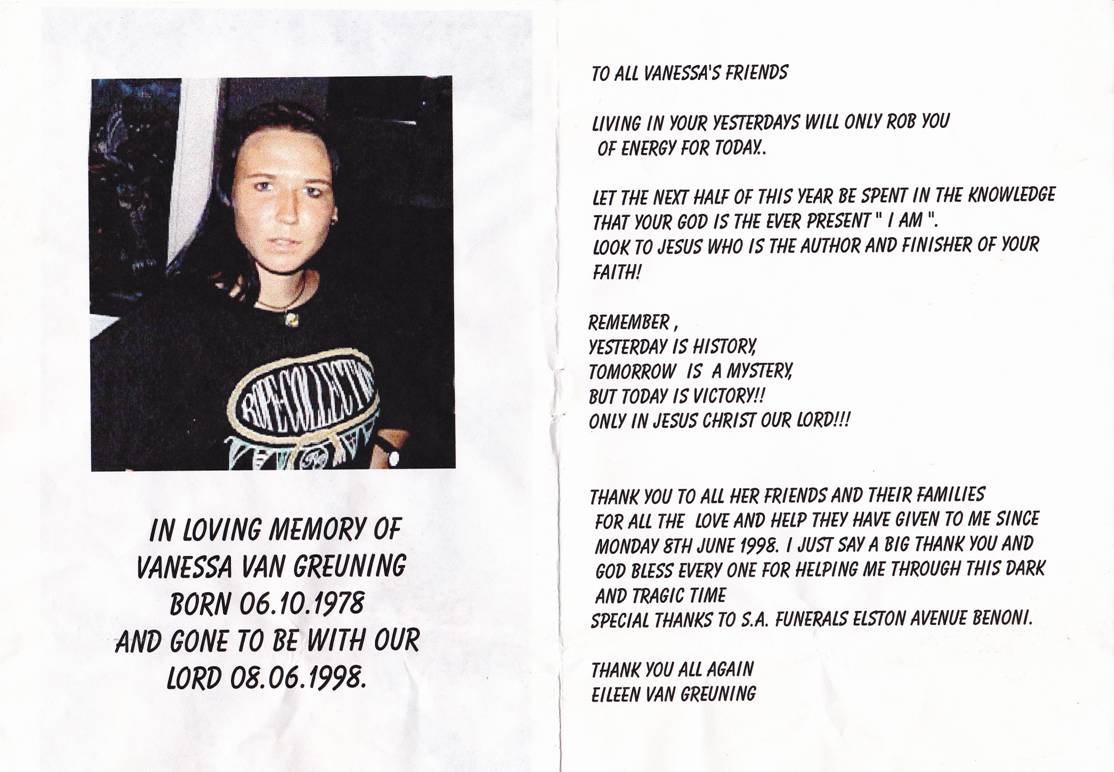 ROPE COLLECTIO
IN LOVING MEMORY OF
VANESSA VAN GREUNING
BORN 06.10.1978
AND GONE TO BE WITH OUR
LORD 08.06.1998.
TO ALL VANESSA'S FRIENDS
LIVING IN YOUR YESTERDAYS WILL ONLY ROB YOU
OF ENERGY FOR TODAY..
LET THE NEXT HALF OF THIS YEAR BE SPENT IN THE KNOWLEDGE
THAT YOUR GOD IS THE EVER PRESENT " I AM ".
LOOK TO JESUS WHO IS THE AUTHOR AND FINISHER OF YOUR
FAITH!
REMEMBER ,
YESTERDAY IS HISTORY,
TOMORROW IS A MYSTERY,
BUT TODAY IS VICTORY!!
ONLY IN JESUS CHRIST OUR LORD!!!
THANK YOU TO ALL HER FRIENDS AND THEIR FAMILIES
FOR ALL THE LOVE AND HELP THEY HAVE GIVEN TO ME SINCE
MONDAY 8TH JUNE 1998. I JUST SAY A BIG THANK YOU AND
GOD BLESS EVERY ONE FOR HELPING ME THROUGH THIS DARK
AND TRAGIC TIME
SPECIAL THANKS TO S.A. FUNERALS ELSTON AVENUE BENONI.
THANK YOU ALL AGAIN
EILEEN VAN GREUNING